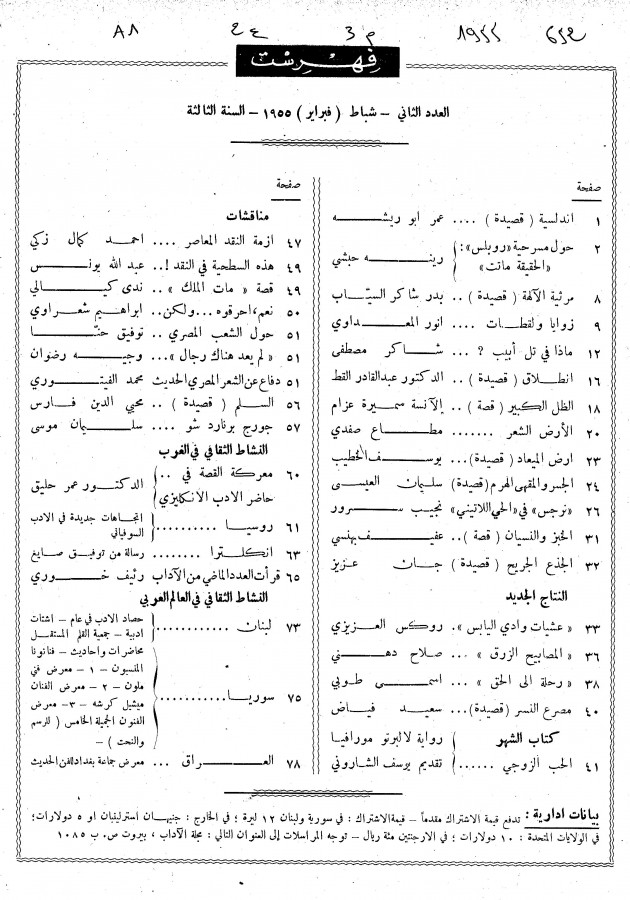 A1 ع ع م 3 1955 652
فهرست
العدد الثاني – شباط ( فبراير ) ١٩٥٥ – السنة الثالثة
صفحة
١ اندلسية ( قصيدة ) .... عمر ابو ريشه
٢ حول مسرحية «روبلس»:
«الحقيقة ماتت» } رينه حبشي
٨ مرثية الآلهة ( قصيدة ) .. بدر شاكر السيّاب
٩ زوايا ولقطات .... انور المعداوي
١٢ ماذا في تل أبيب ? ... شاكر مصطفى
١٦ انطلاق ( قصيدة ) .. الدكتور عبدالقادر القط
١٨ الظل الكبير ( قصة ) .. الآنسة سميرة عزام
٢٠ الأرض الشعر ....... مطاع صفدي
٢٣ ارض الميعاد ( قصيدة )... يوسف الخطيب
٢٤ الجسر والمقهى الهرم (قصيدة) سليمان العيسى
٢٦ «نرجس» في «الحي اللاتيني» نجيب سرور
٣١ الخبز والنسيان ( قصة ) .. عفيف بهنسي
٣٢ الجذع الجريح ( قصيدة ) جان عزيز
النتاج الجديد
٣٣ «عشيات وادي اليابس». روكس العزيزي
٣٦ «المصابيح الزرق» ... صلاح دهني
٣٨ «رحلة الى الحق» ... اسمى طوبي
٤٠ مصرع النسر (قصيدة)... سعيد فياض
كتاب الشهر
٤١ الحب الزوجي ...... { رواية لالبرتو مورافيا
تقديم يوسف الشاروني
صفحة
مناقشات
٤٧ ازمة النقد المعاصر .... احمد كمال زكي
٤٩ هذه السطحية في النقد !.. عبد الله يونس
٤٩ قصة «مات الملك» .. ندى كيالي
٥٠ نعم، احرقوه ...ولكن.. ابراهيم شعراوي
٥١ حول الشعب المصري .. توفيق حنّا
٥١ «لم يعد هناك رجال»... وجيه رضوان
٥١ دفاع عن الشعر المصري الحديث محمد الفيتوري
٥٦ السلم ( قصيدة ) .. محيي الدين فارس
٥٧ جورج برنارد شو ... سليمان موسى
النشاط الثقافي في الغرب
٦٠ معركة القصة في ..
حاضر الادب الانكليزي } الدكتور عمر حليق
٦١ روسيا .......... { اتجاهات جديدة في الادب
السوفياتي
٦٣ انكلترا ........ رسالة من توفيق صايغ
٦٥ قرأت العدد الماضي من الآداب رئيف خوري
النشاط الثقافي في العالم العربي
٧٣ لبنان .......... { حصاد الادب في عام – اشتات
ادبية – جمعية القلم المستقل
٧٥ سوريا........... { محاضرات واحاديث – فنانونا
المنسيون – ١ – معرض فني
ملون – ٢ – معرض الفنان
ميشيل كرشه – ٣– معرض
الفنون الجميلة الخامس ( للرسم
والنحت ) –
٧٨ العراق .. معرض جماعة بغداد للفن الحديث
بيانات ادارية : تدفع قيمة الاشتراك مقدماً – قيمة الاشتراك : في سورية ولبنان ١٢ ليرة ؛ في الخارج : جنيهان استرلينيان او ٥ دولارات؛
في الولايات المتحدة : ١٠ دولارات ؛ في الارجنتين مئة ريال – توجه المراسلات إلى العنوان التالي : مجلة الآداب ، بيروت ص. ب ١٠٨٥